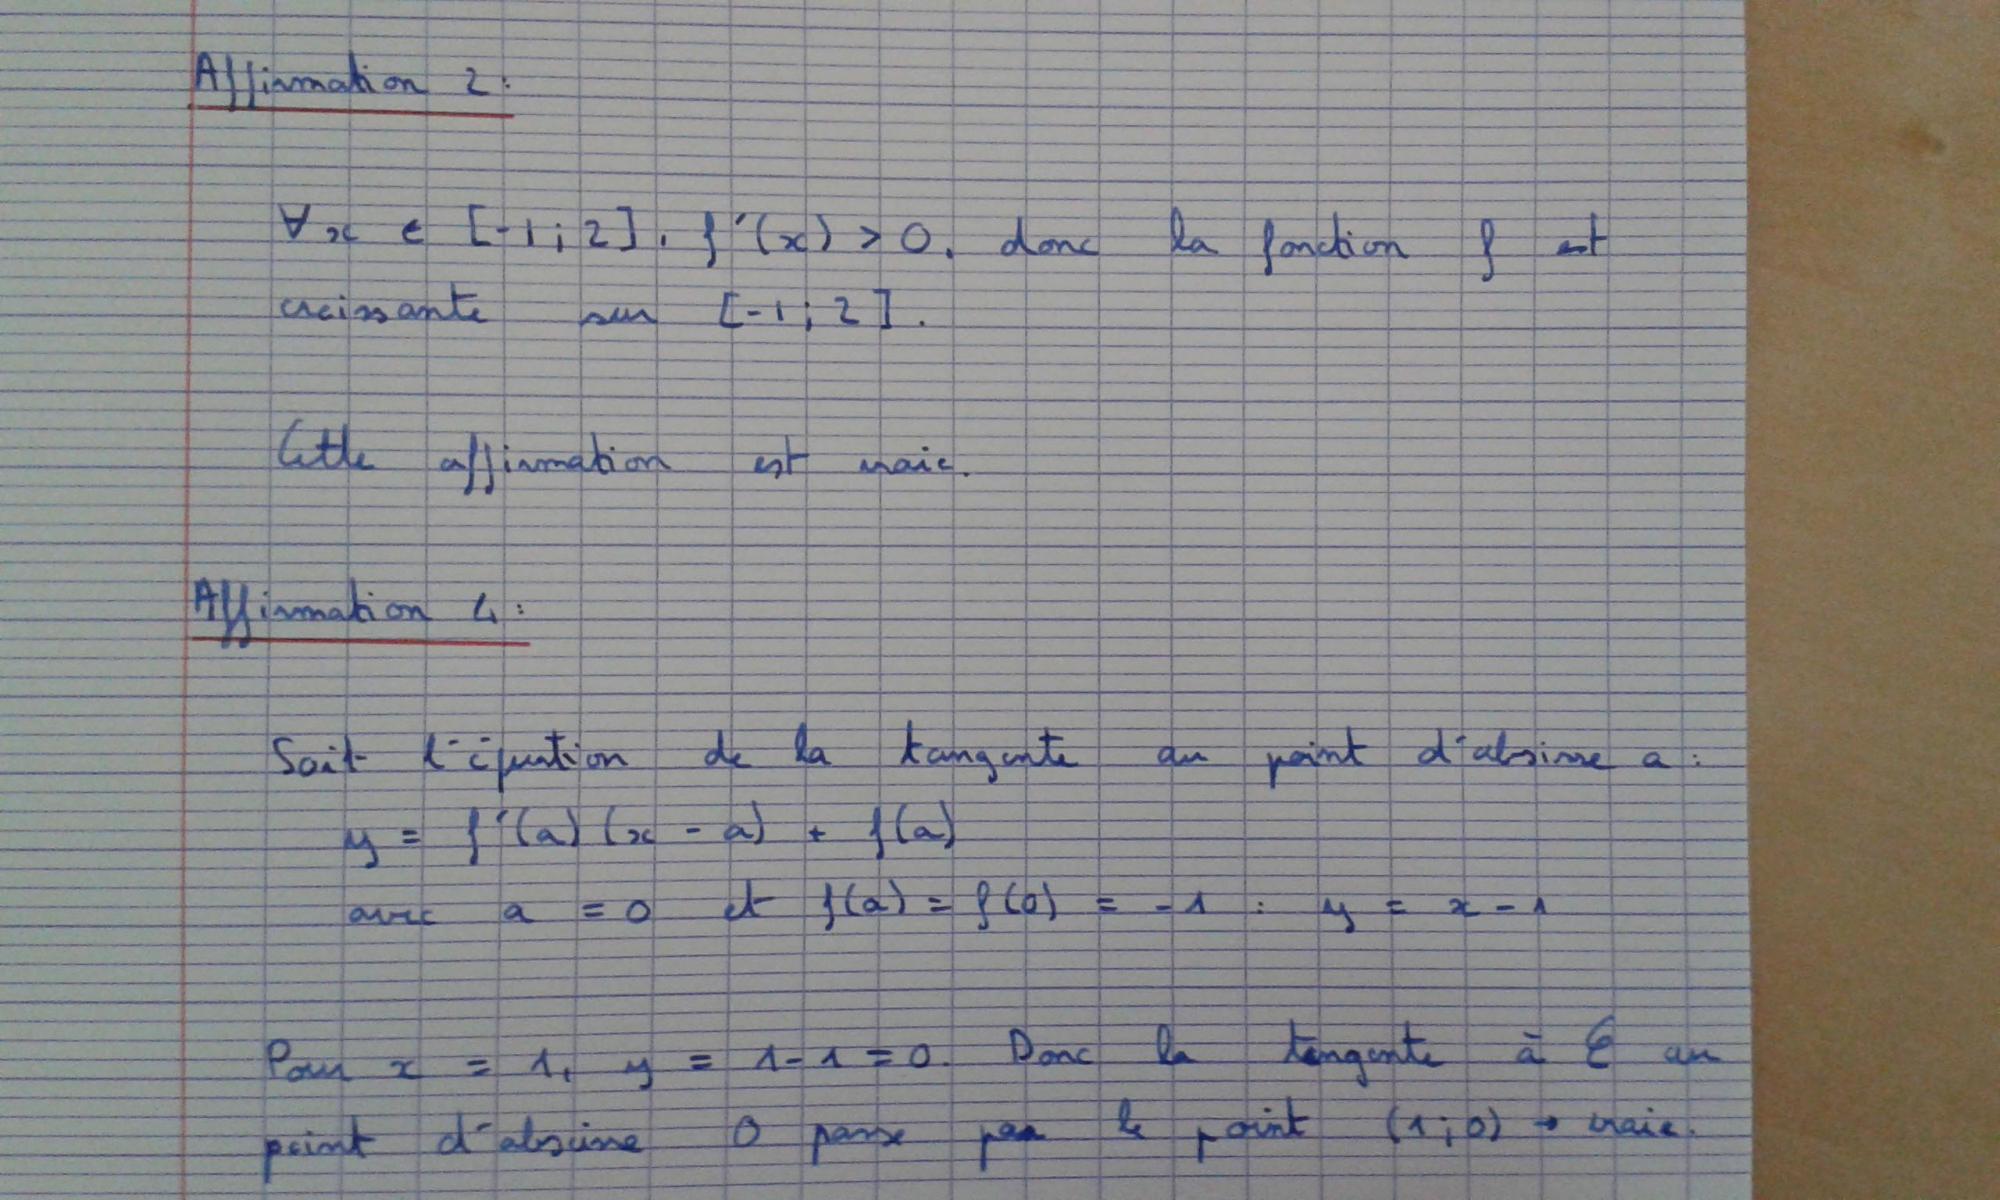 Affirmation 2 :
∀x ∈ [-1 ; 2], f'(x) > 0, donc la fonction f est
croissante sur [-1 ; 2].
Cette affirmation est vraie.
Affirmation 4 :
Soit l'équation de la tangente au point d'abscisse a :
y = f'(a) (x - a) + f(a)
avec a = 0 et f(a) = f(0) = -1 : y = x - 1
Pour x = 1, y = 1 - 1 = 0. Donc la tangente à C au
point d'abscisse 0 passe par le point (1 ; 0) → vraie.